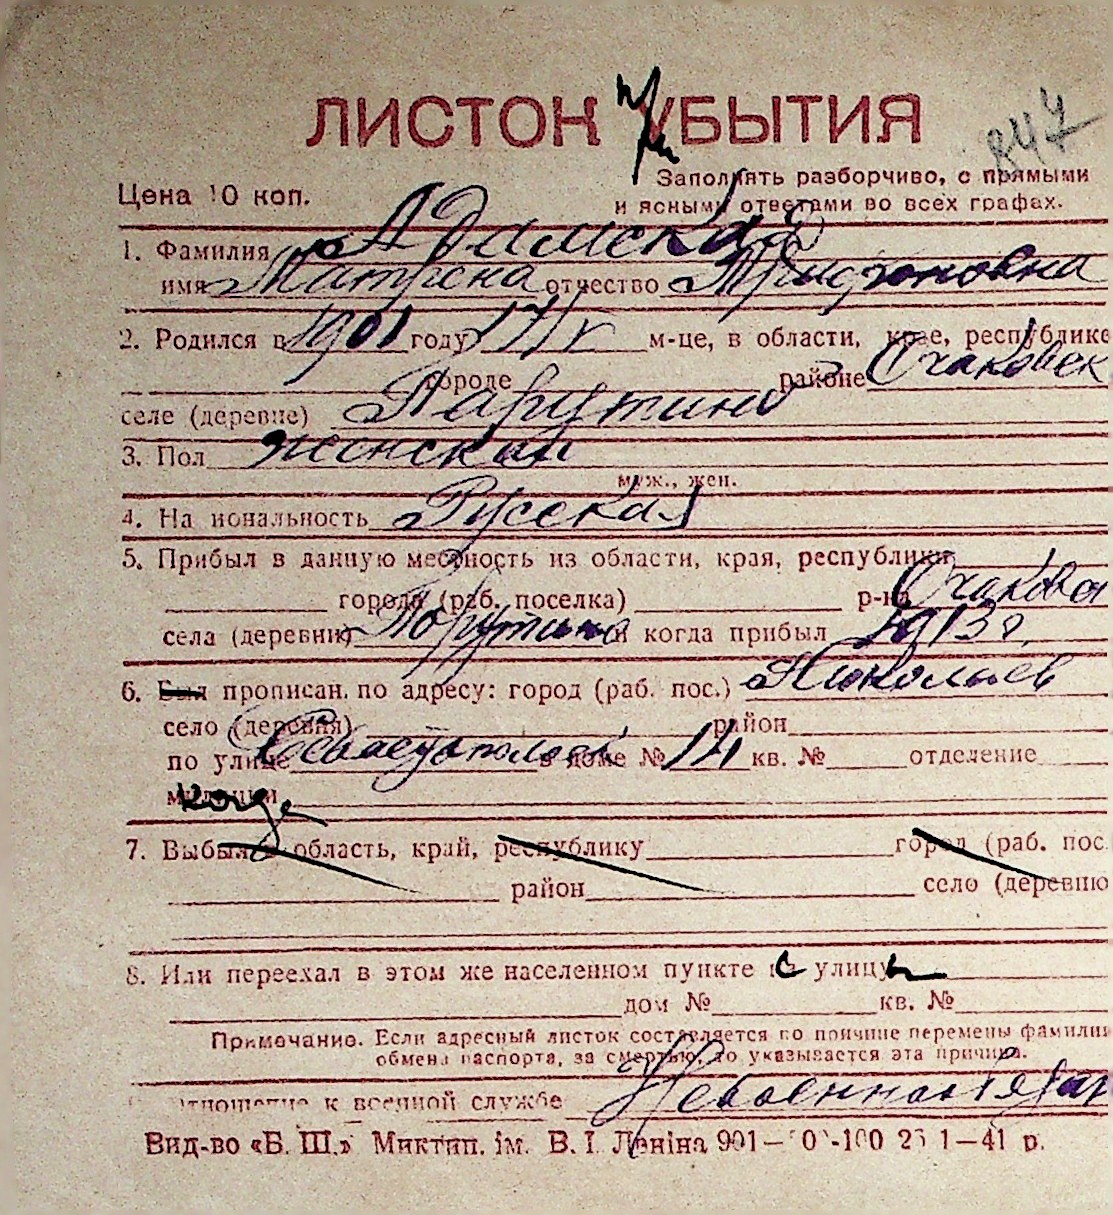 ЛИСТОК УБЫТИЯ
847
Цена 10 коп.
Заполнять разборчиво, с прямыми
и ясными ответами во всех графах.
1. Фамилия Адамская
имя Матрена отчество Трифоновна
2. Родился в 1901 году м-це, в области, крае, республике
городе районе Очаковск
селе (деревне) Парутино
3. Пол женский
муж., жен.
4. Национальность Русская
5. Прибыл в данную местность из области, края, республики
города (раб. поселка) р-на Очаков
села (деревни) Парутино и когда прибыл 1913 г.
6. Был прописан по адресу: город (раб. пос.) Николаев
село (деревня) район
по улице Севастопольск в доме № 14 кв. № отделение
милиции когда
7. Выбыл в область, край, республику город (раб. пос.
район село (деревню
8. Или переехал в этом же населенном пункте с улицы
дом № кв. №
Примечание. Если адресный листок составляется по причине перемены фамилии
обмена паспорта, за смертью, то указывается эта причина.
отношение к военной службе
Вид-во «Б. Ш.» Миктип. ім. В. І. Леніна 901— 1—41 р.